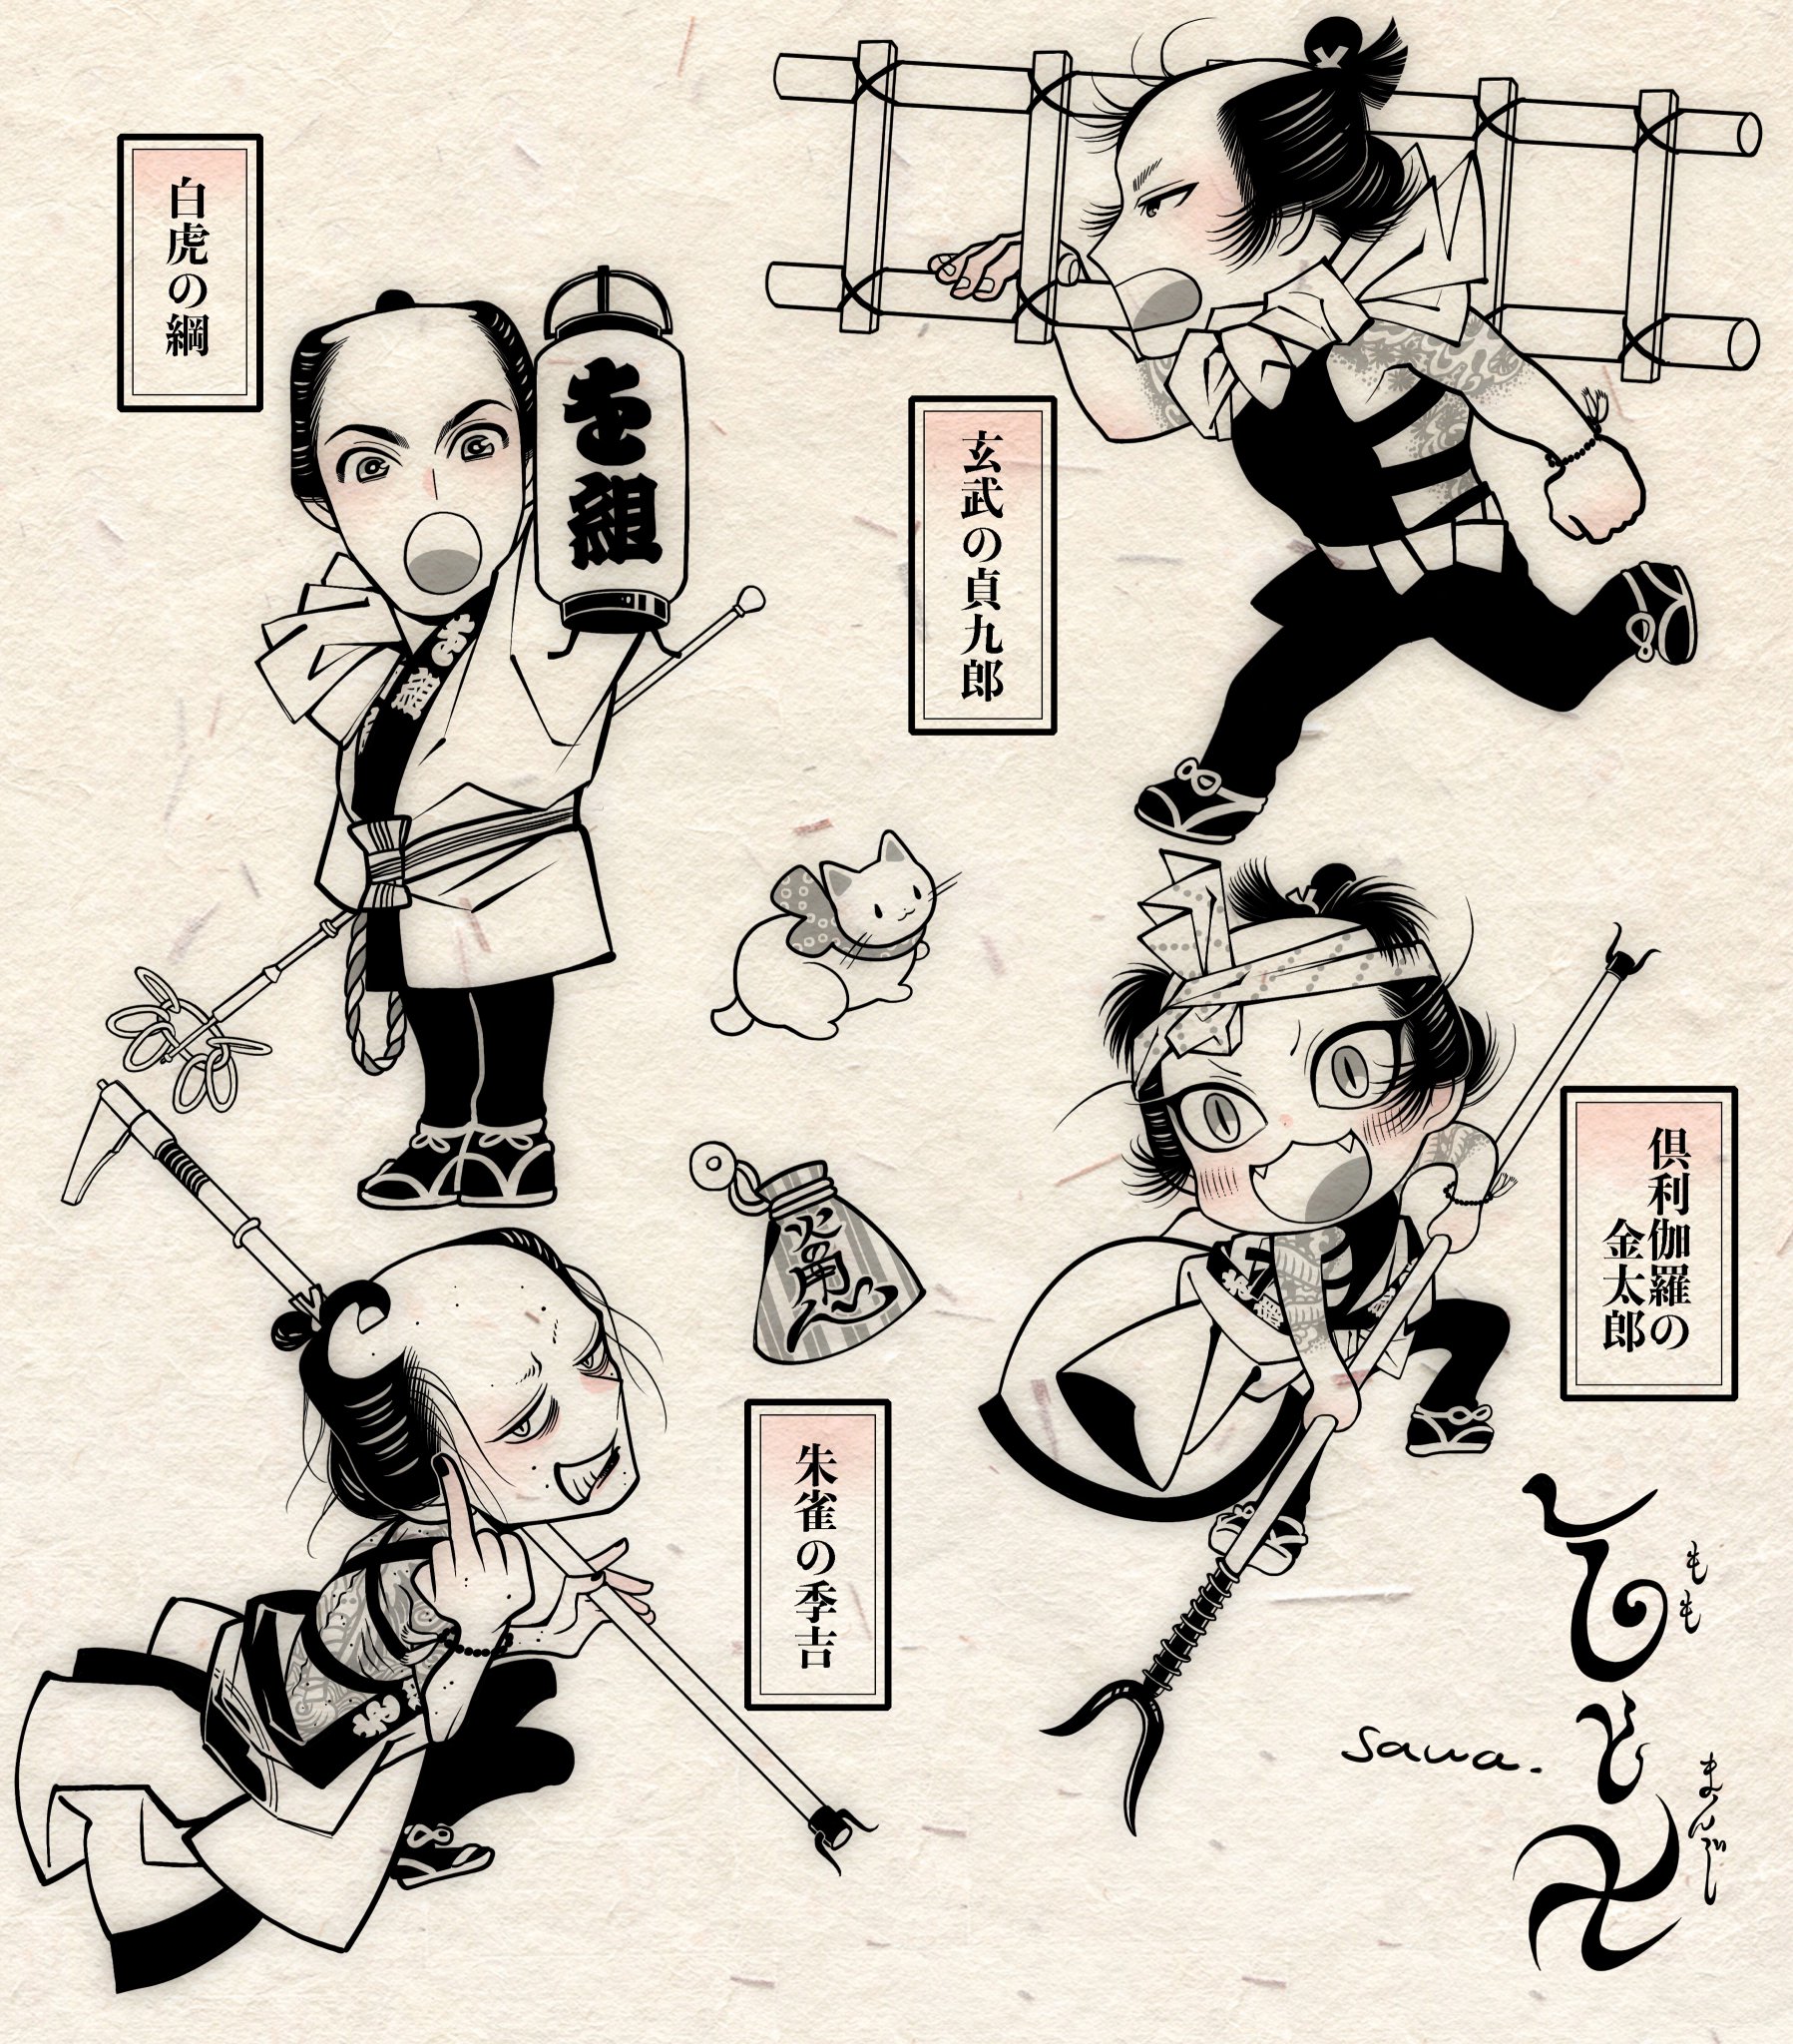 白虎の綱
を組
玄武の貞九郎
倶利伽羅の
金太郎
火用心
朱雀の季吉
百と卍
もも
まんじ
sawa.